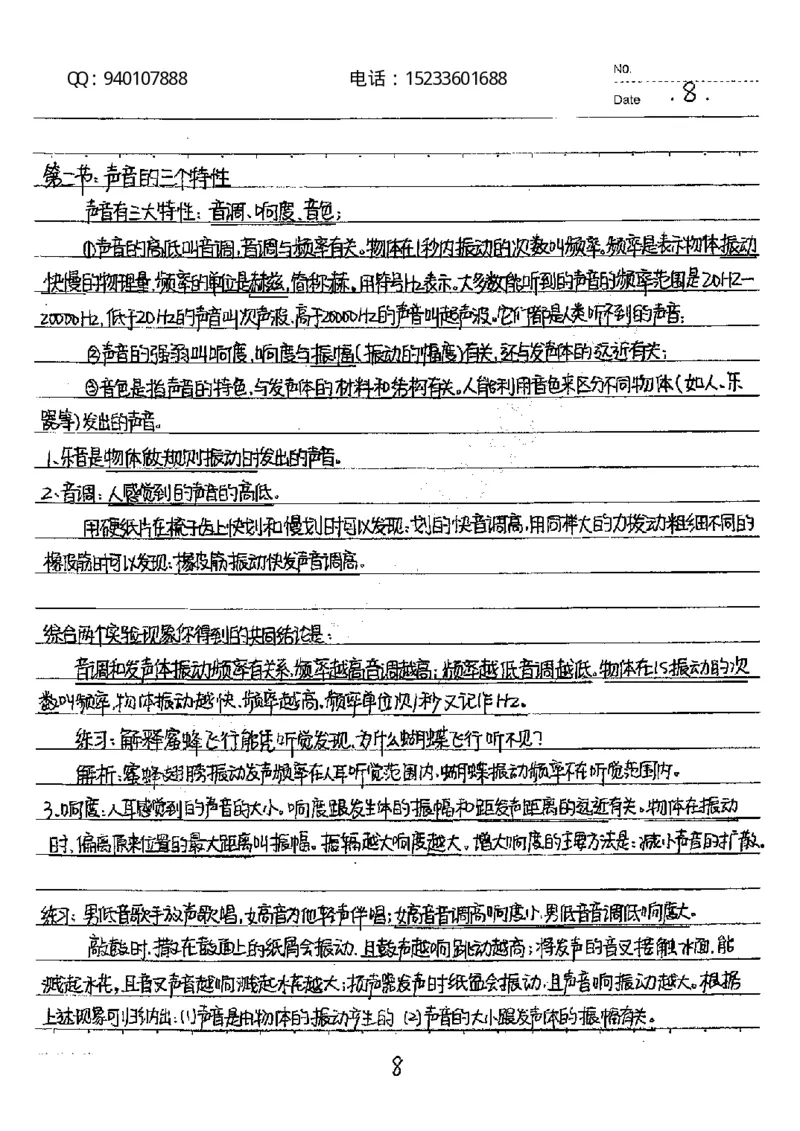 QQ：940107888 电话：15233601688 No.
Date . 8 .
第二节：声音的三个特性
声音有三大特性：音调、响度、音色；
①声音的高低叫音调，音调与频率有关。物体在1秒内振动的次数叫频率。频率是表示物体振动
快慢的物理量，频率的单位是赫兹，简称赫。用符号Hz表示。大多数能听到的声音的频率范围是20HZ—
20000Hz，低于20HZ的声音叫次声波、高于20000HZ的声音叫超声波。它们都是人类听不到的声音；
②声音的强弱叫响度，响度与振幅（振动的幅度）有关，还与发声体的远近有关；
③音色是指声音的特色，与发声体的材料和结构有关。人能利用音色来区分不同物体（如人、乐
器等）发出的声音。
1、乐音是物体做规则振动时发出的声音。
2、音调：人感觉到的声音的高低。
用硬纸片在梳子齿上快划和慢划时可以发现：划的快音调高，用同样大的力拨动粗细不同的
橡皮筋时可以发现：橡皮筋振动快发声音调高。
综合两个实验现象你得到的共同结论是：
音调和发声体振动频率有关系，频率越高音调越高；频率越低音调越低。物体在1S振动的次
数叫频率，物体振动越快、频率越高。频率单位次/秒又记作Hz。
练习：解释蜜蜂飞行能凭听觉发现、为什么蝴蝶飞行听不见？
解析：蜜蜂翅膀振动发声频率在人耳听觉范围内，蝴蝶振动频率不在听觉范围内。
3、响度：人耳感觉到的声音的大小。响度跟发生体的振幅和距发声距离的远近有关。物体在振动
时，偏离原来位置的最大距离叫振幅。振幅越大响度越大。增大响度的主要方法是：减小声音的扩散。
练习：男低音歌手放声歌唱，女高音为他轻声伴唱；女高音音调高响度小，男低音音调低响度大。
敲鼓时，撒在鼓面上的纸屑会振动，且鼓声越响跳动越高；将发声的音叉接触水面，能
溅起水花，且音叉声音越响溅起水花越大；扬声器发声时纸盆会振动，且声音响振动越大。根据
上述现象可归纳出：(1)声音是由物体的振动产生的 (2)声音的大小跟发声体的振幅有关。
8